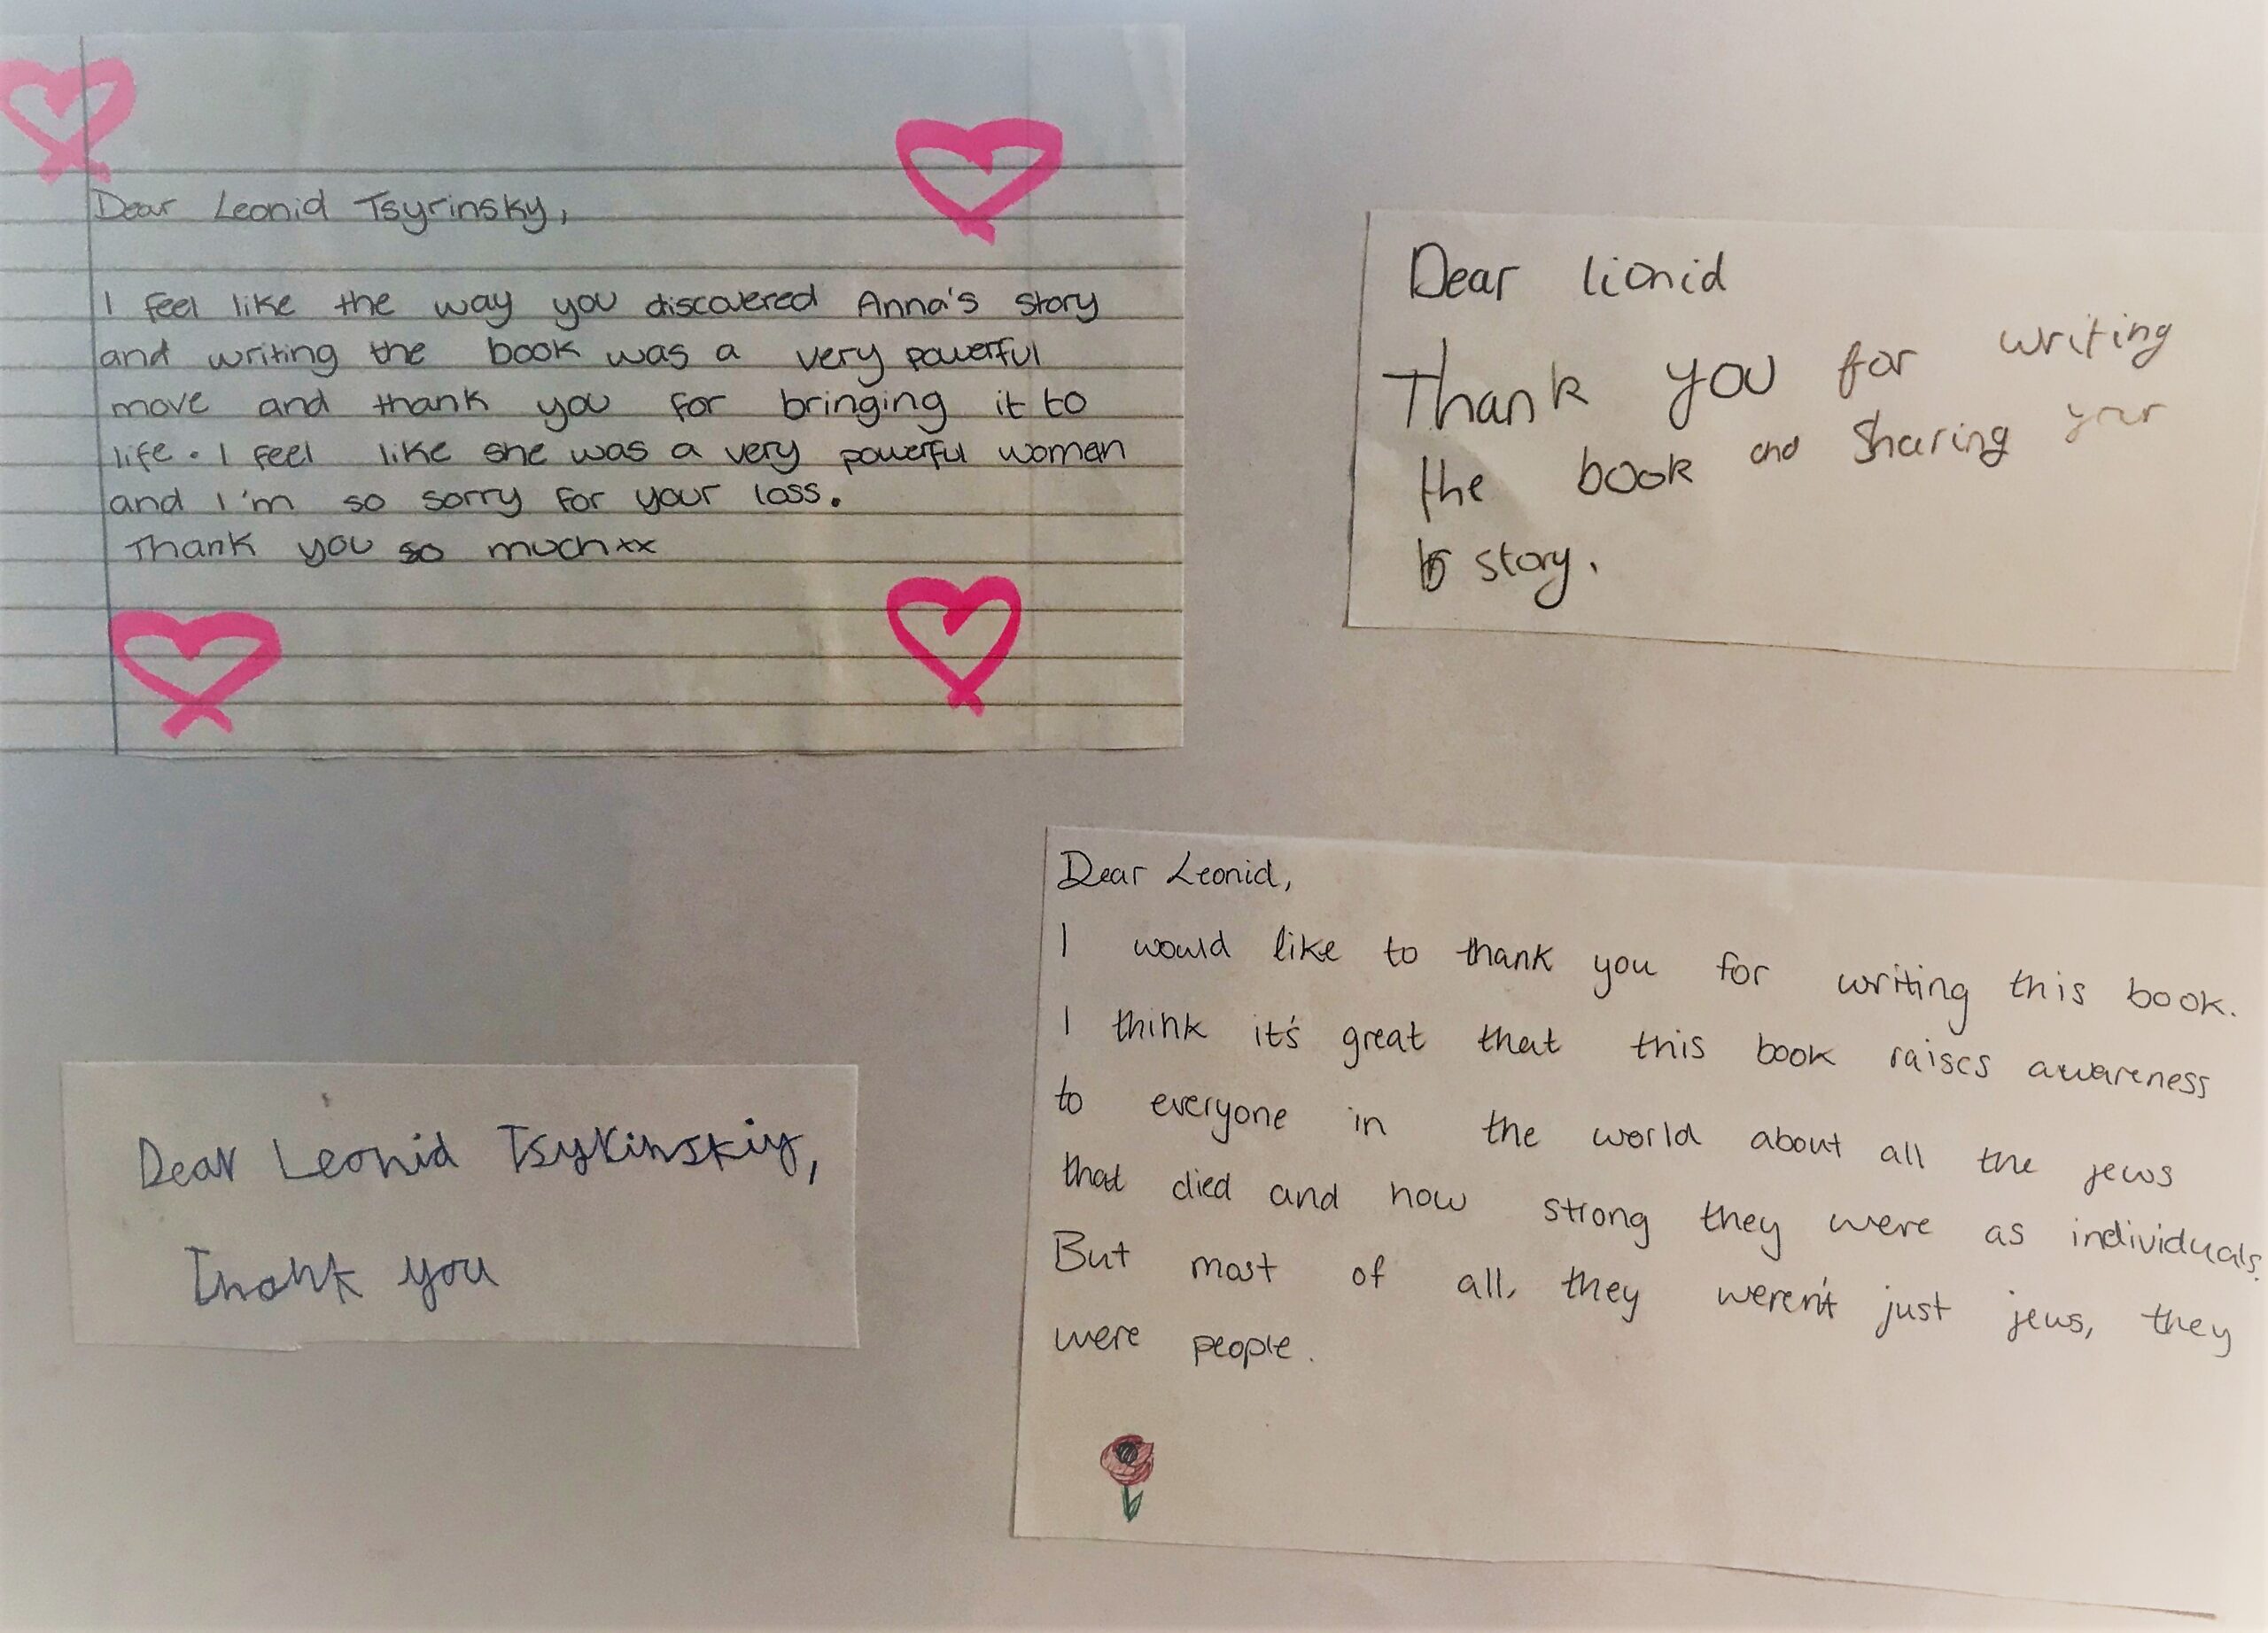 Dear Leonid Tsyrinsky,
I feel like the way you discovered Anna's story
and writing the book was a very powerful
move and thank you for bringing it to
life. I feel like she was a very powerful women
and I'm so sorry for your loss.
Thank you so much xx
Dear lionid
Thank you for writing
the book and Sharing your
story.
Dear Leonid Tsyrinskiy,
Thank you
Dear Leonid,
I would like to thank you for writing this book.
I think it's great that this book raises awareness
to everyone in the world about all the jews
that died and how strong they were as individuals.
But most of all, they weren't just jews, they
were people.